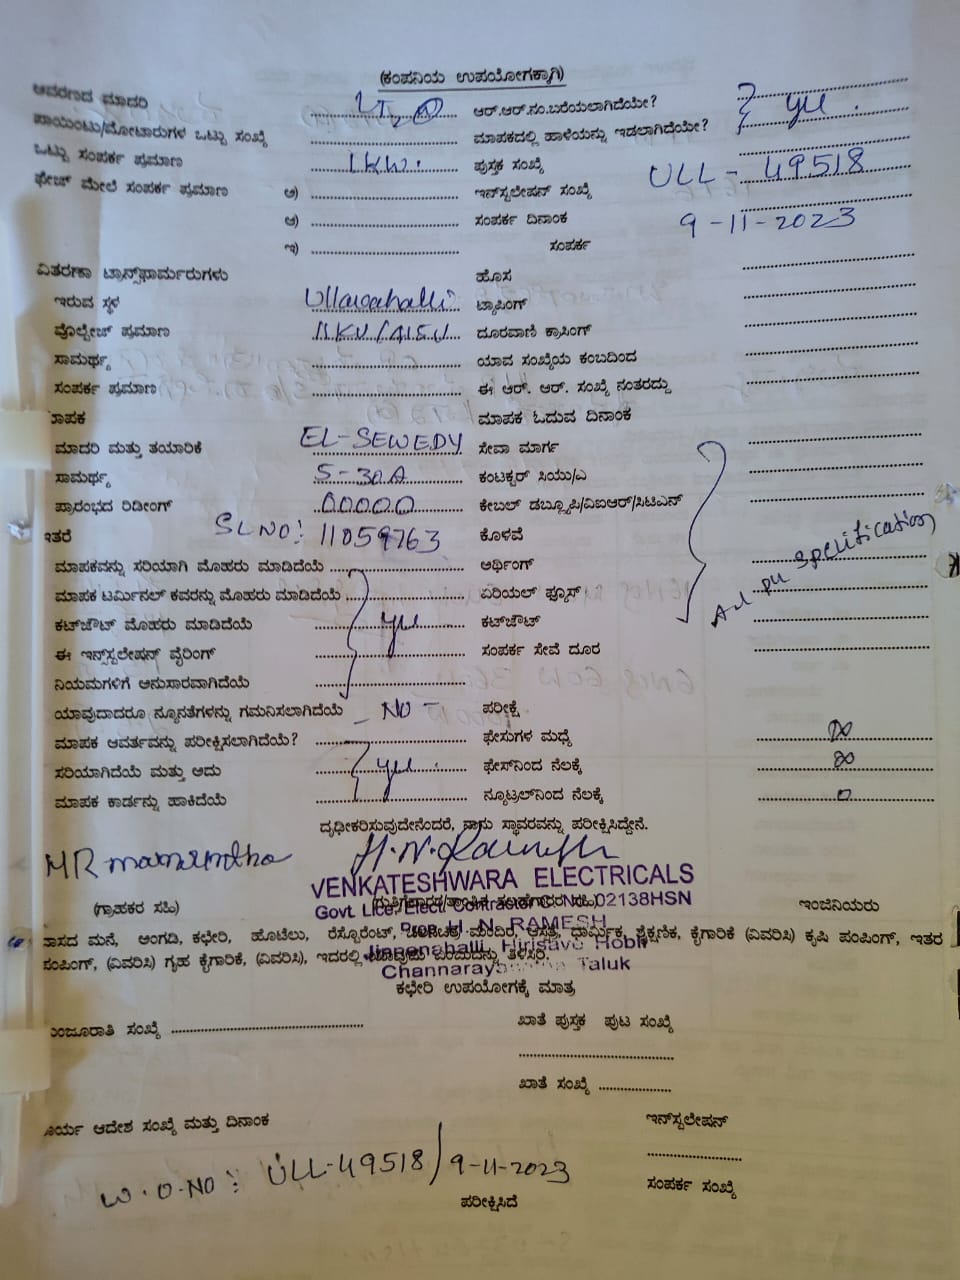 (ಕಂಪನಿಯ ಉಪಯೋಗಕ್ಕಾಗಿ)
ಆವರಣದ ಮಾದರಿ ಆರ್.ಆರ್.ನಂ.ಬರೆಯಲಾಗಿದೆಯೇ?
ಪಾಯಿಂಟು/ಮೋಟಾರುಗಳ ಒಟ್ಟು ಸಂಖ್ಯೆ ಮಾಪಕದಲ್ಲಿ ಹಾಳೆಯನ್ನು ಇಡಲಾಗಿದೆಯೇ?
ಒಟ್ಟು ಸಂಪರ್ಕ ಪ್ರಮಾಣ 1KW. ಪುಸ್ತಕ ಸಂಖ್ಯೆ
ಫೇಜ್ ಮೇಲೆ ಸಂಪರ್ಕ ಪ್ರಮಾಣ ಅ) ಇನ್‌ಸ್ಟಲೇಷನ್ ಸಂಖ್ಯೆ ULL - 49518
ಆ) ಸಂಪರ್ಕ ದಿನಾಂಕ 9-11-2023
ಇ) ಸಂಪರ್ಕ
ವಿತರಣಾ ಟ್ರಾನ್ಸ್‌ಫಾರ್ಮರುಗಳು ಹೊಸ
ಇರುವ ಸ್ಥಳ Ullavahalli ಟ್ಯಾಪಿಂಗ್
ವೊಲ್ಟೇಜ್ ಪ್ರಮಾಣ 11KV/415V ದೂರವಾಣಿ ಕ್ರಾಸಿಂಗ್
ಸಾಮರ್ಥ್ಯ ಯಾವ ಸಂಖ್ಯೆಯ ಕಂಬದಿಂದ
ಸಂಪರ್ಕ ಪ್ರಮಾಣ ಈ ಆರ್. ಆರ್. ಸಂಖ್ಯೆ ನಂತರದ್ದು
ಮಾಪಕ ಮಾಪಕ ಓದುವ ದಿನಾಂಕ
ಮಾದರಿ ಮತ್ತು ತಯಾರಿಕೆ EL-SEWEDY ಸೇವಾ ಮಾರ್ಗ
ಸಾಮರ್ಥ್ಯ 5-30A ಕಂಟಕ್ಟರ್ ಸಿಯು/ಎ
ಪ್ರಾರಂಭದ ರಿಡೀಂಗ್ 00000 ಕೇಬಲ್ ಡಬ್ಲ್ಯೂಪಿ/ವಿಐಆರ್/ಸಿಟಿಎಸ್
ಇತರೆ SLNO: 11059763 ಕೊಳವೆ
ಮಾಪಕವನ್ನು ಸರಿಯಾಗಿ ಮೊಹರು ಮಾಡಿದೆಯೆ ಅರ್ಥಿಂಗ್
ಮಾಪಕ ಟರ್ಮಿನಲ್ ಕವರನ್ನು ಮೊಹರು ಮಾಡಿದೆಯೆ ಏರಿಯಲ್ ಫ್ಯೂಸ್
ಕಟ್‌ಔಟ್ ಮೊಹರು ಮಾಡಿದೆಯೆ ಕಟ್‌ಔಟ್
ಈ ಇನ್ಸ್‌ಸ್ಟಲೇಷನ್ ವೈರಿಂಗ್ ಸಂಪರ್ಕ ಸೇವೆ ದೂರ
ನಿಯಮಗಳಿಗೆ ಅನುಸಾರವಾಗಿದೆಯೆ
ಯಾವುದಾದರೂ ನ್ಯೂನತೆಗಳನ್ನು ಗಮನಿಸಲಾಗಿದೆಯೆ - NO - ಪರೀಕ್ಷೆ
ಮಾಪಕ ಆವರ್ತವನ್ನು ಪರೀಕ್ಷಿಸಲಾಗಿದೆಯೆ? ಫೇಸುಗಳ ಮಧ್ಯೆ
ಸರಿಯಾಗಿದೆಯೆ ಮತ್ತು ಅದು ಫೇಸ್‌ನಿಂದ ನೆಲಕ್ಕೆ
ಮಾಪಕ ಕಾರ್ಡನ್ನು ಹಾಕಿದೆಯೆ ನ್ಯೂಟ್ರಲ್‌ನಿಂದ ನೆಲಕ್ಕೆ 0
ದೃಢೀಕರಿಸುವುದೇನೆಂದರೆ, ನಾನು ಸ್ಥಾವರವನ್ನು ಪರೀಕ್ಷಿಸಿದ್ದೇನೆ.
VENKATESHWARA ELECTRICALS
Govt. Lice, Elect. Contractor C. No. 02138HSN
(ಗ್ರಾಹಕರ ಸಹಿ) ಇಂಜಿನಿಯರು
Prop. H. N. RAMESH
ವಾಸದ ಮನೆ, ಅಂಗಡಿ, ಕಛೇರಿ, ಹೊಟೆಲು, ರೆಸ್ಟೊರೆಂಟ್, ಮಂದಿರ, ಆಸ್ಪತ್ರೆ, ಧಾರ್ಮಿಕ, ಶೈಕ್ಷಣಿಕ, ಕೈಗಾರಿಕೆ (ವಿವರಿಸಿ) ಕೃಷಿ ಪಂಪಿಂಗ್, ಇತರ
Jinnenahalli, Hirisave Hobli
ಪಂಪಿಂಗ್, (ವಿವರಿಸಿ) ಗೃಹ ಕೈಗಾರಿಕೆ, (ವಿವರಿಸಿ), ಇದರಲ್ಲಿ ತಿಳಿಸಿರಿ.
Taluk
ಕಛೇರಿ ಉಪಯೋಗಕ್ಕೆ ಮಾತ್ರ
ಮಂಜೂರಾತಿ ಸಂಖ್ಯೆ ಖಾತೆ ಪುಸ್ತಕ ಪುಟ ಸಂಖ್ಯೆ
ಖಾತೆ ಸಂಖ್ಯೆ
ಕಾರ್ಯ ಆದೇಶ ಸಂಖ್ಯೆ ಮತ್ತು ದಿನಾಂಕ ಇನ್‌ಸ್ಟಲೇಷನ್
W.O.NO: ULL-49518/9-11-2023 ಸಂಪರ್ಕ ಸಂಖ್ಯೆ
ಪರೀಕ್ಷಿಸಿದೆ